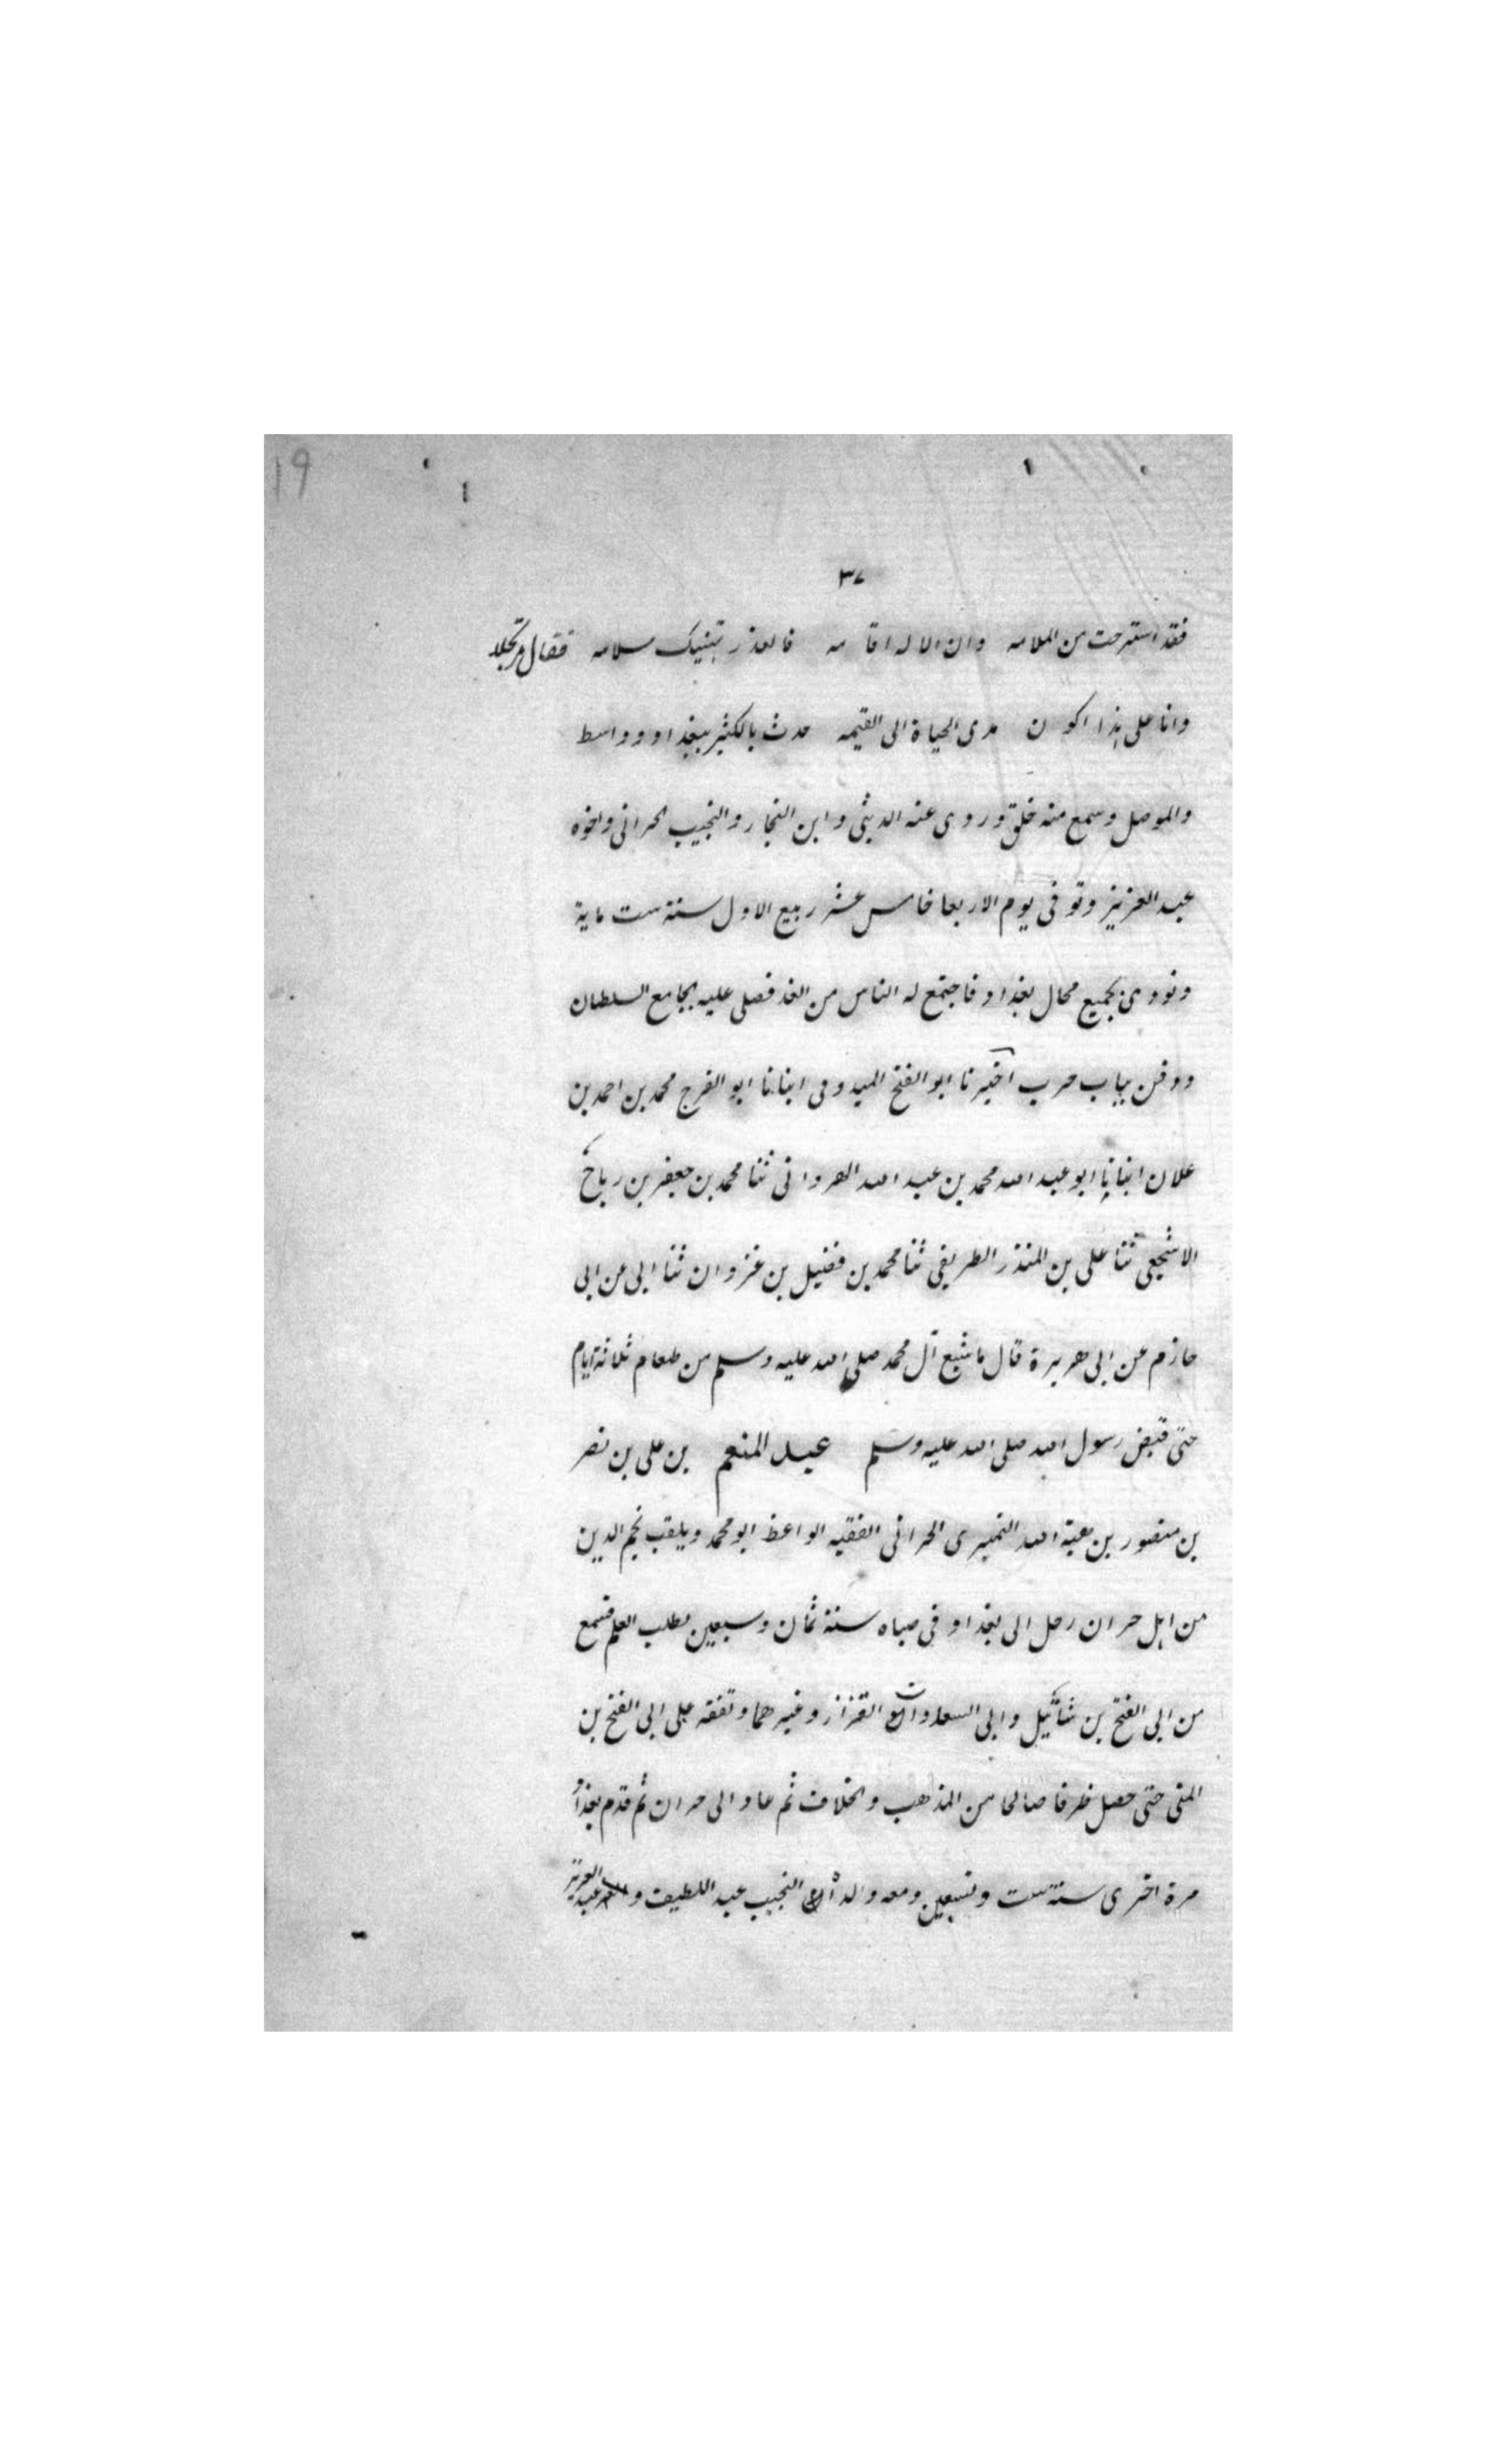 19
٣٧
فقد استرحت من الملامه وان الا له اقا مه فالعذر بتنيك سلامه فقال
وانا على هذا اكو ن مدى الحياة الى القيمه حدث بالكثير ببغداد وواسط
والموصل وسمع منه خلق وروى عنه الدبثى وابن النجار والنجيب الحرانى واخوه
عبد العزيز وتوفى يوم الاربعا خامس عشر ربيع الاول سنة ست ماية
ونودى بجميع محال بغداد فاجتمع له الناس من الغد فصلى عليه بجامع السلطان
ودفن بباب حرب اخبرنا ابو الفتح الميدومى انبانا ابو الفرج محمد بن احمد بن
علان انبانا ابو عبد الله محمد بن عبد الله الهروانى ثنا محمد بن جعفر بن رباح
الاشجعى ثنا على بن المنذر الطريفى ثنا محمد بن فضيل بن غزوان ثنا ابى عن ابى
حازم عن ابى هريرة قال ما شبع آل محمد صلى الله عليه وسلم من طعام ثلاثة ايام
حتى قبض رسول الله صلى الله عليه وسلم عبد المنعم بن على بن نصر
بن منصور بن هبة الله النميرى الحرانى الفقيه الواعظ ابو محمد ويلقب نجم الدين
من اهل حران رحل الى بغداد فى صباه سنة ثمان وسبعين لطلب العلم فسمع
من ابى الفتح بن شاتيل وابى السعادات القزاز وغيرهما وتفقه على ابى الفتح بن
المنى حتى حصل طرفا صالحا من المذهب والخلاف ثم عاد الى حران ثم قدم بغداد
مرة اخرى سنة ست وتسعين ومعه ولداه النجيب عبد اللطيف و عبد العزيز